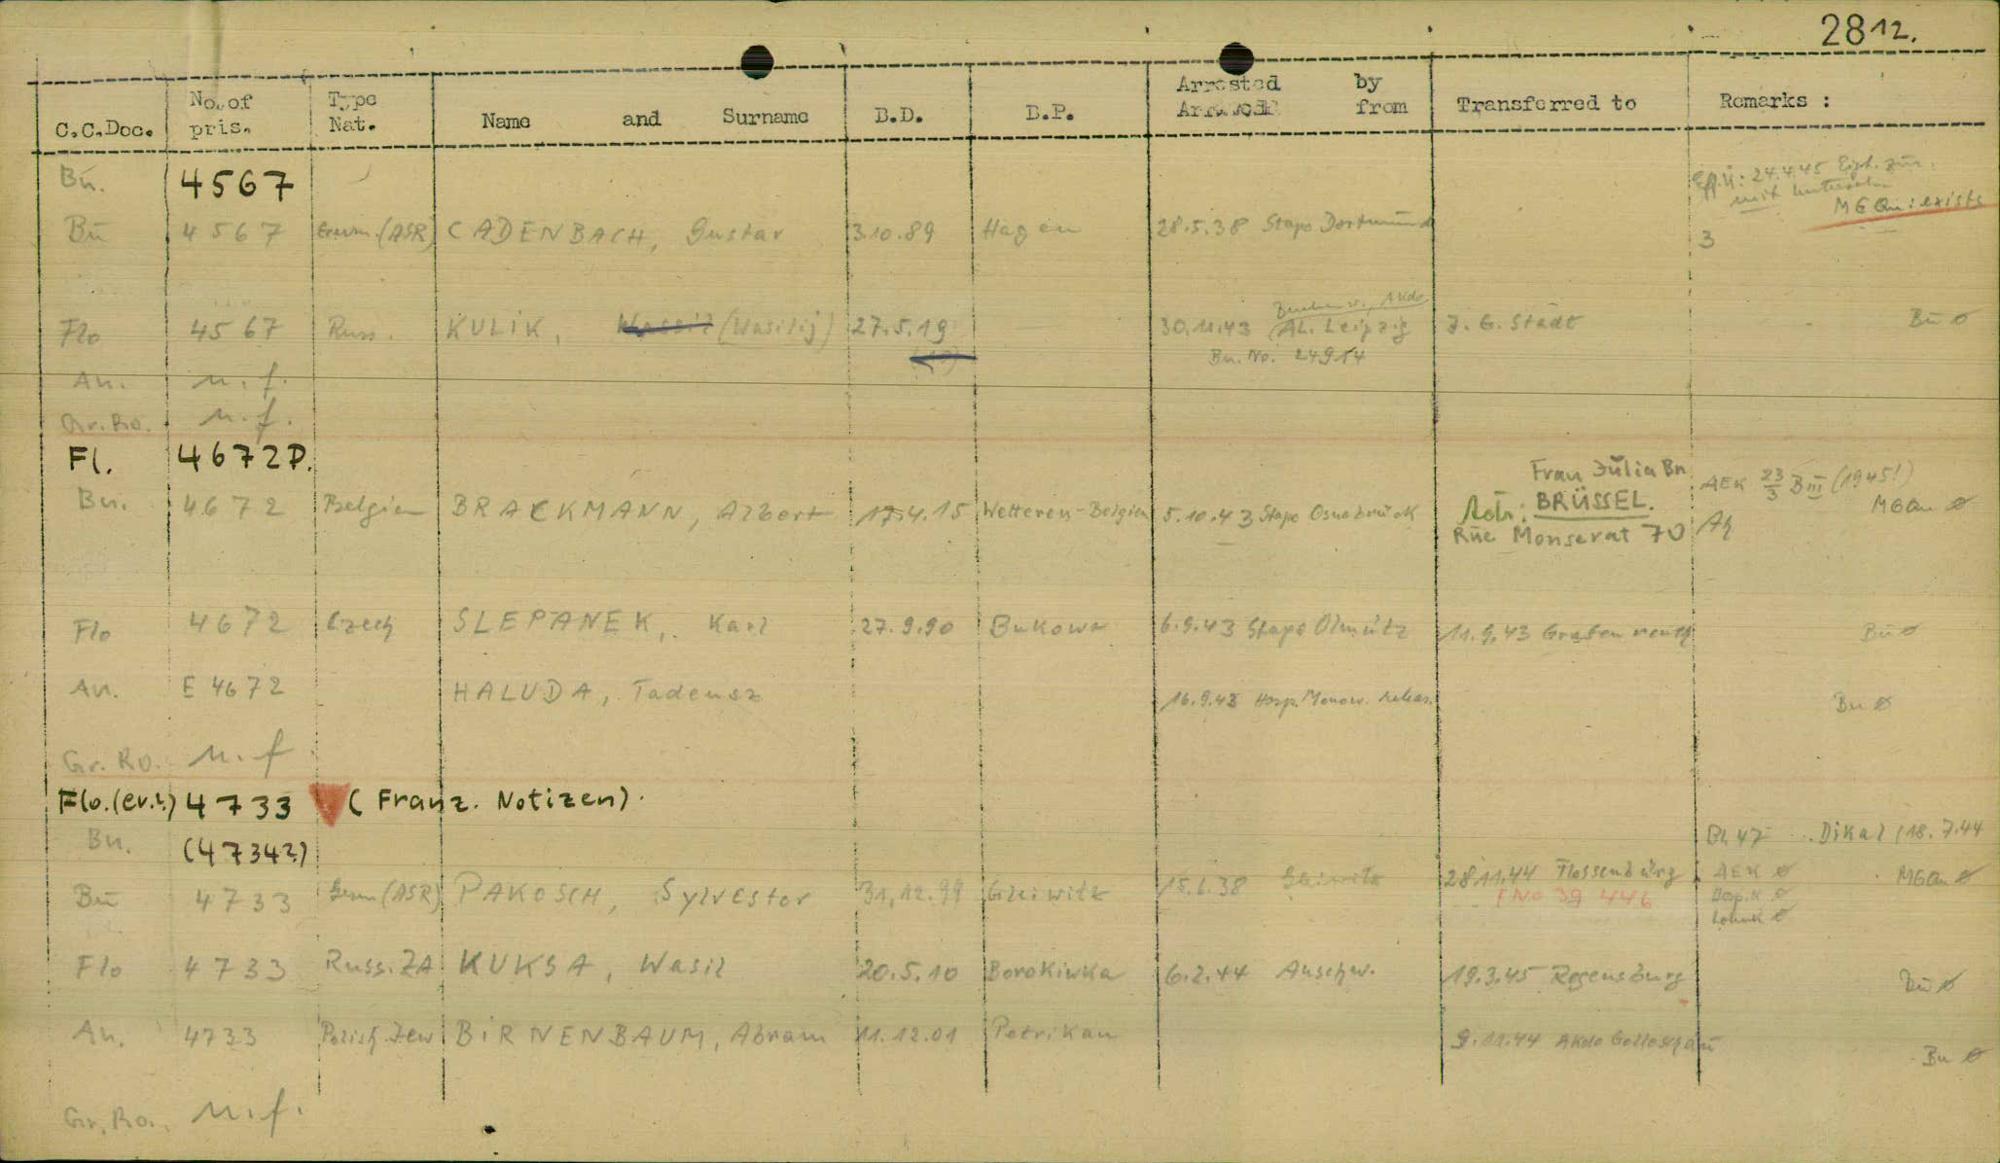 2812.
C.C.Doc. No. of pris. Type Nat. Name and Surname B.D. B.P. Arrested by from Transferred to Remarks :
Bu. 4567 24.4.45
MGQu: exists
Bu 4567 Germ. (ASR) CADENBACH, Gustav 3.10.89 Hagen 28.5.38 Stapo Dortmund 3
Flo 4567 Russ. KULIK, (Wasilij) 27.5.19 30.11.43 (AL. Leipzig J. G. Städt Bu ø
Bu. No. 24914
An. n. f.
Gr. Ro. n. f.
Fl. 4672 P.
Bu. 4672 Belgien BRACKMANN, Albert 17.4.15 Wetteren-Belgien 5.10.43 Stapo Osnabrück Frau Julia Bn AEK 23/3 B III (1945!)
BRÜSSEL. MGQu ø
Rue Monserat 70
Flo 4672 Czech SLEPANEK, Karl 27.9.90 Bukowa 6.9.43 Stapo Olmütz 11.9.43 Grafenreuth Bu ø
An. E 4672 HALUDA, Tadeusz 16.9.43 Hosp. Monow. Bu ø
Gr. Ro. n. f
Flo. (ev.?) 4733 ( Franz. Notizen).
Bu. (4734?) Dikal (18.7.44
Bu 4733 Germ (ASR) PAKOSCH, Sylvester 31.12.99 Gleiwitz 15.6.38 Gleiwitz 28.11.44 Flossenbürg AEK ø MGQu ø
No 39 446
Flo 4733 Russ. ZA KUKSA, Wasil 20.5.10 Borokiwka 6.2.44 Auschw. 19.3.45 Regensburg Bu ø
An. 4733 Polish Jew BIRNENBAUM, Abram 11.12.01 Petrikau 9.11.44 AKdo Golleschau Bu ø
Gr. Ro. n. f.